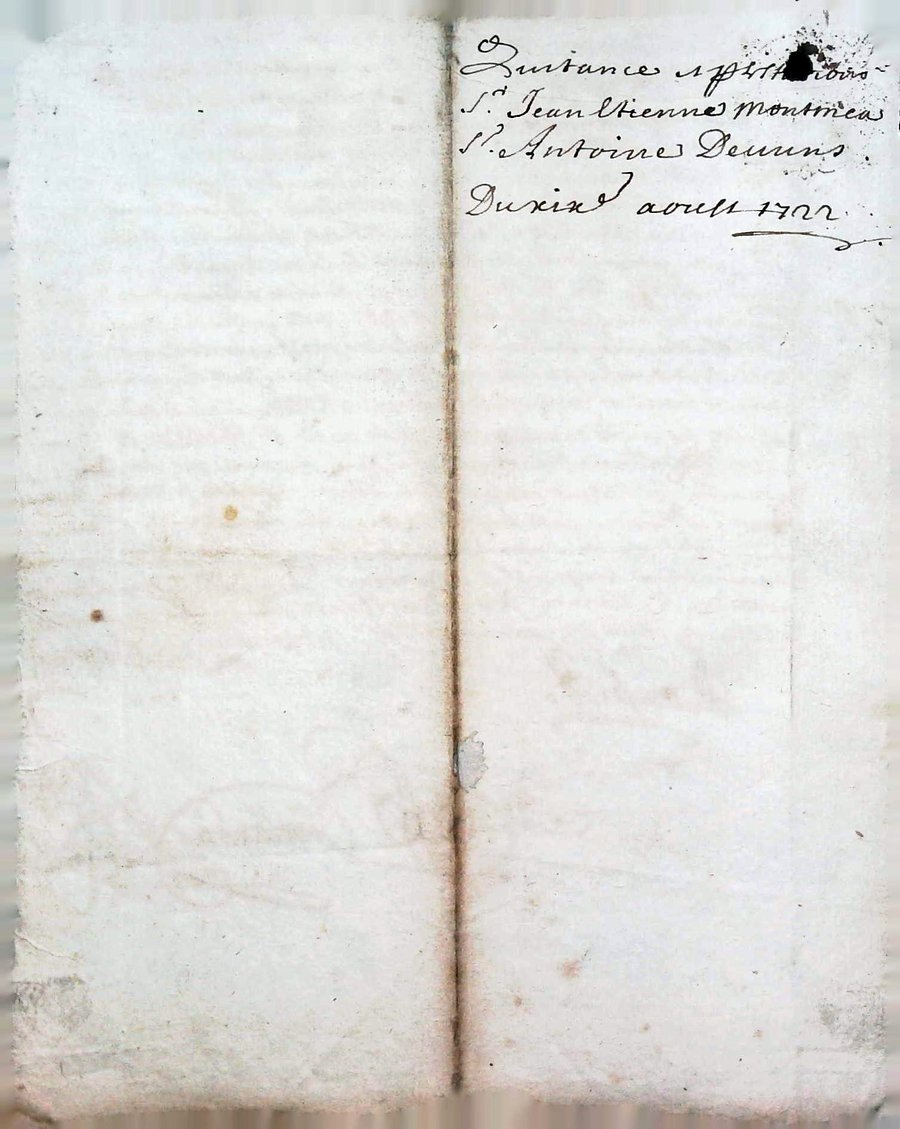 Quitance
Sr. Jean Etienne Montmea
Sr. Antoine
Du xixe aoust 1722